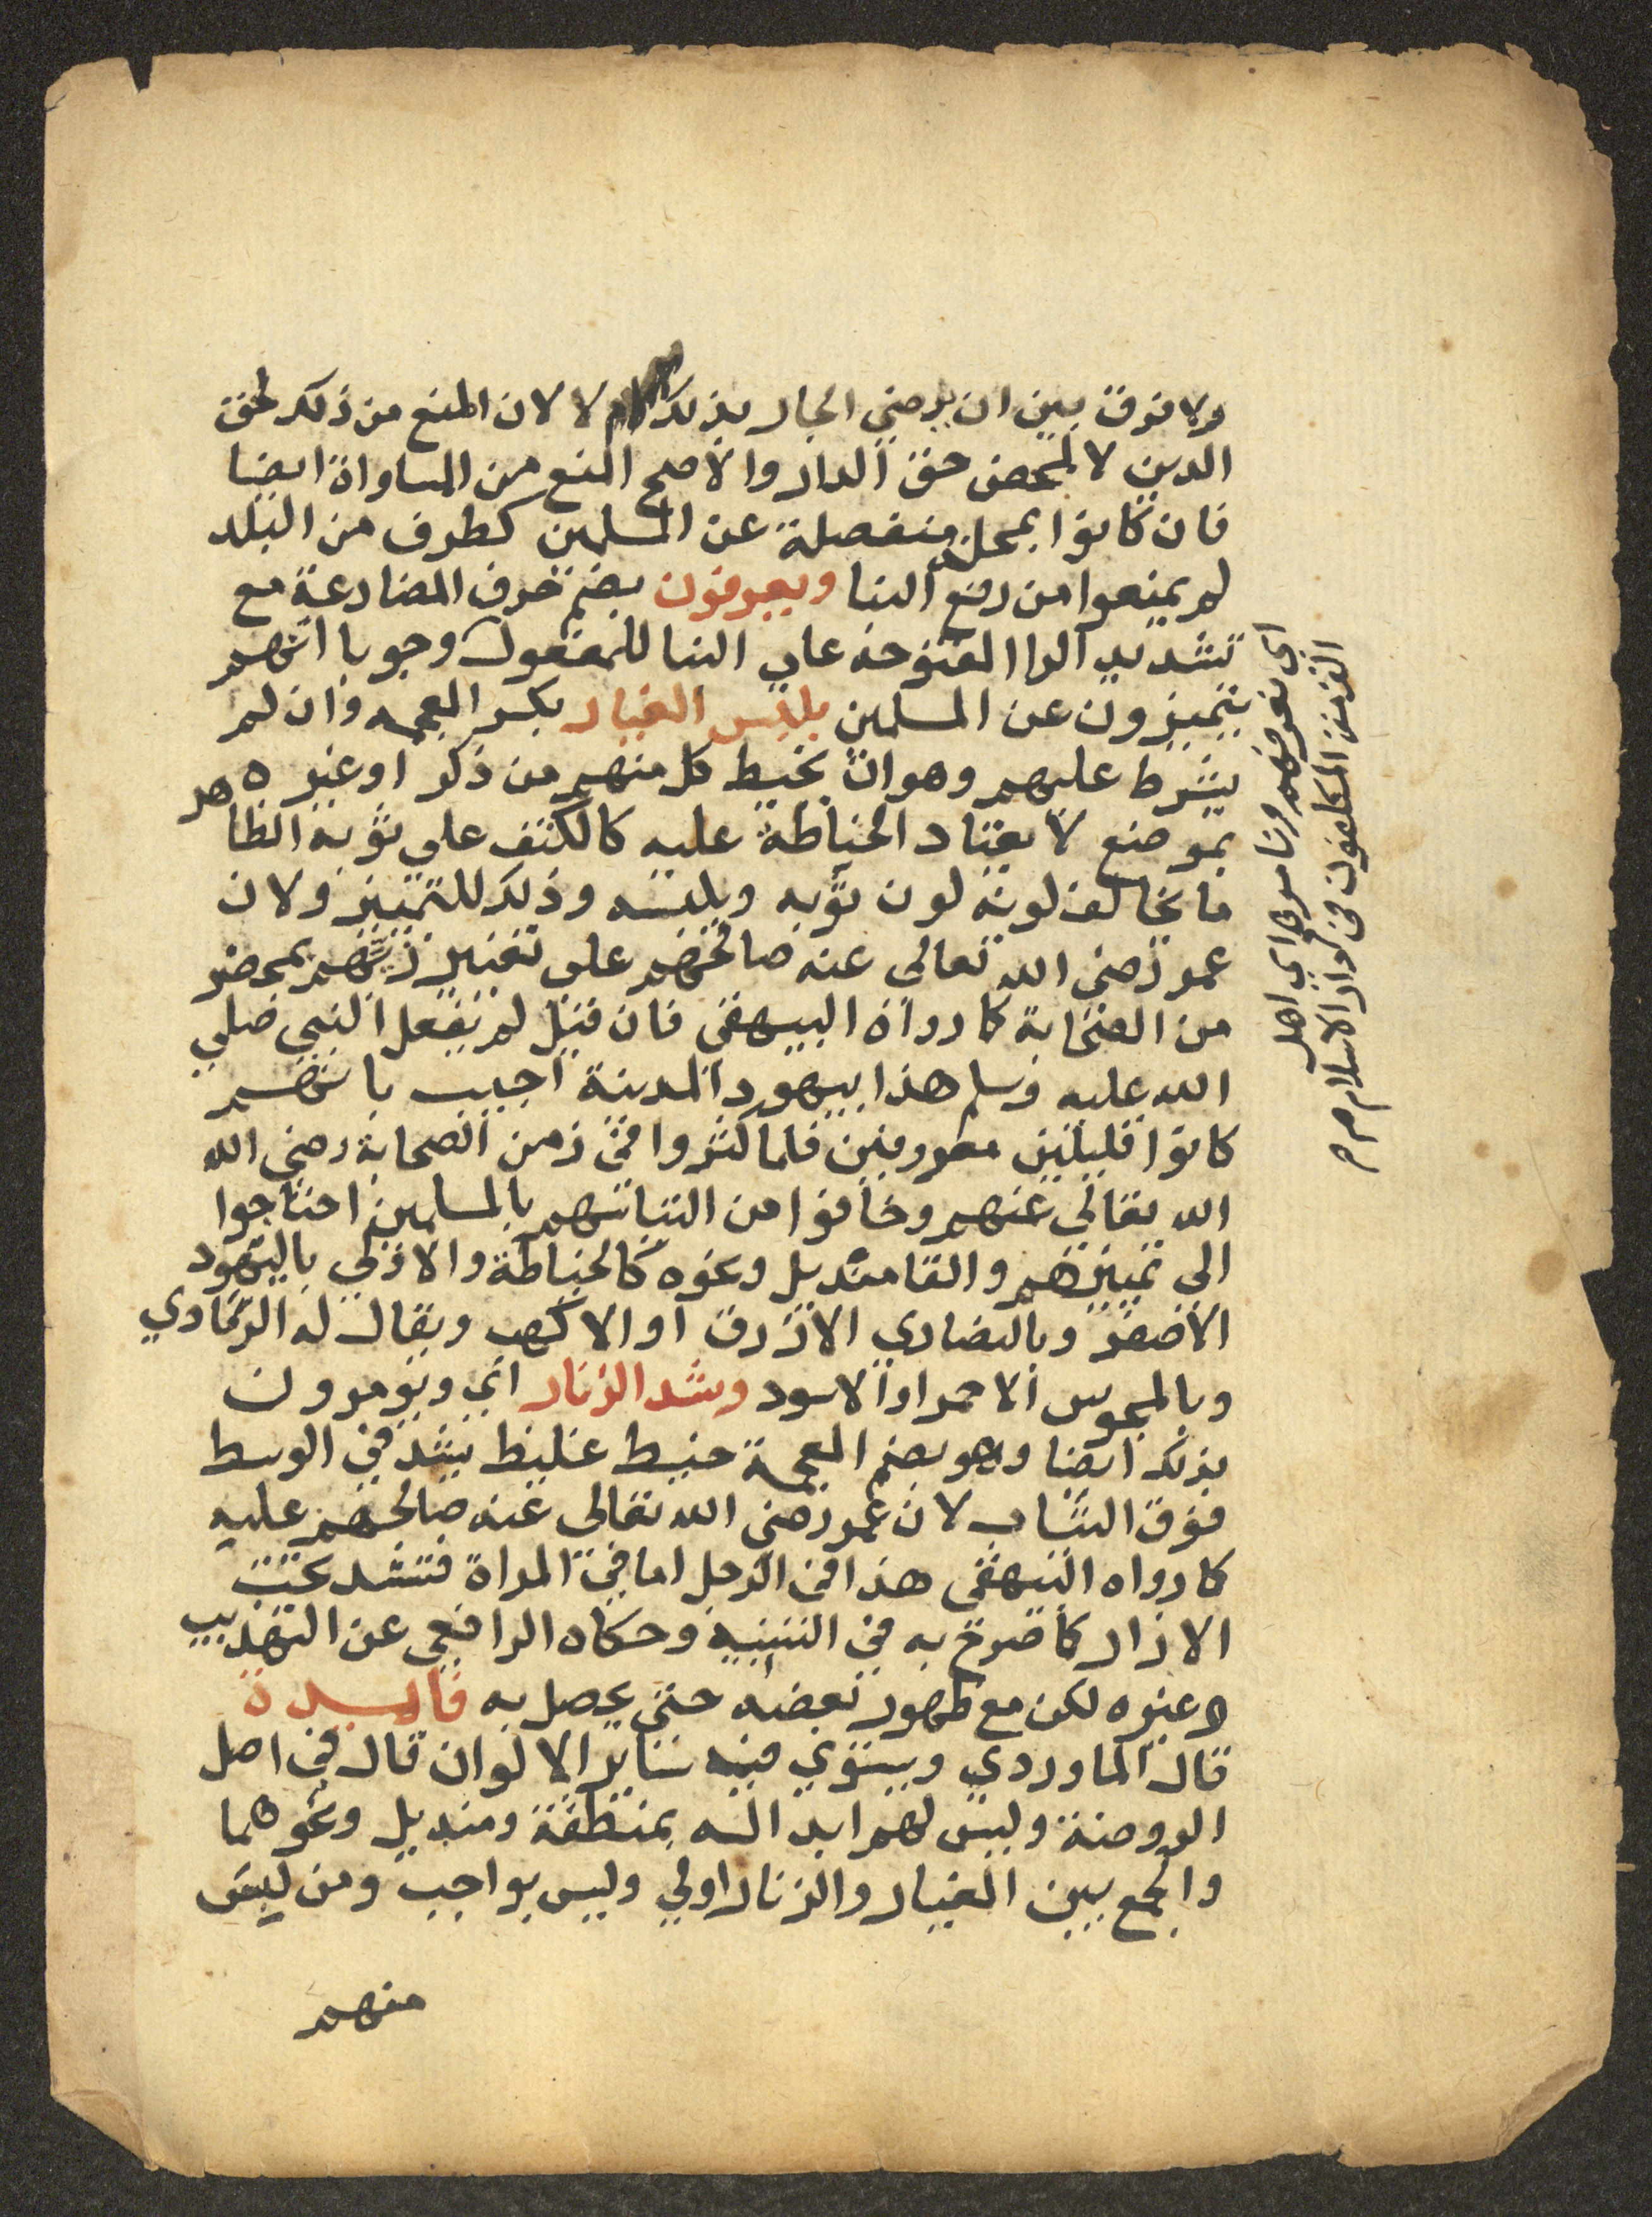 ولا فرق بين ان يرضي الجار بذلك ام لا لان المنع من ذلك لحق
الدين لا لمحض حق الدار والاصح المنع من المساواة ايضا
فان كانوا بمحلة منفصلة عن المسلمين كطرف من البلد
لم يمنعوا من رفع البنا ويعرفون بضم حرف المضارعة مع
تشديد الرا المفتوحة علي البنا للمفعول وجوبا انهم
يتميزون عن المسلمين بلبس الغيار بكسر المعجمه وان لم
يشرط عليهم وهو ان يخيط كل منهم من ذكر او غيره
بموضع لا يعتاد الخياطة عليه كالكتف علي ثوبه الظاهر
ما يخالف لونه لون ثوبه ويلبسه وذلك للتمييز ولان
عمر رضي الله تعالى عنه صالحهم على تغيير زيهم بمحضر
من الصحابة كما رواه البيهقي فان قيل لم يفعل النبي صلي
الله عليه وسلم هذا بيهود المدينة اجيب بانهم
كانوا قليلين معروفين فلما كثروا في زمن الصحابة رضي الله
الله تعالي عنهم وخافوا من التباسهم بالمسلمين احتاجوا
الى تمييزهم والقا منديل ونحوه كالخياطة والاولي باليهود
الاصفر وبالنصاري الازرق او الاكهب ويقال له الرمادي
وبالمجوس الاحمر او الاسود وشد الزنار اي ويؤمرون
بذلك ايضا وهو بضم المعجمة خيط غليظ يشد في الوسط
فوق الثياب لان عمر رضي الله تعالى عنه صالحهم عليه
كما رواه البيهقي هذا في الرجل اما في المراة فتشد تحت
الازار كما صرح به في التنبيه وحكاه الرافعي عن التهذيب
وغيره لكن مع ظهور بعضه حتى يحصل به فايدة
قال الماوردي ويستوي فيه ساير الالوان قال في اصل
الروضة وليس لهم ابداله بمنطقة ومنديل ونحوهما
والجمع بين الغيار والزنار اولي وليس بواجب ومن لبس
منهم
اي اهل
الذمة المكلفون في دار الاسلام